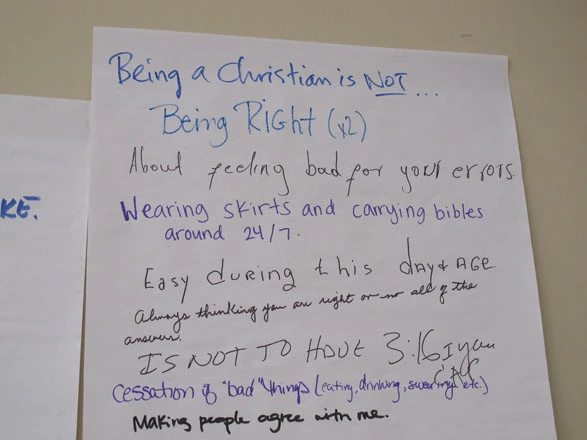 KE.
Being a Christian is NOT...
Being Right (x2)
About feeling bad for your errors.
Wearing skirts and carrying bibles
around 24/7.
Easy during this day & AGE
Always thinking you are right or all of the
answers.
IS NOT TO HAVE 3:16 I
Cessation of "bad" things (eating, drinking, swearing, etc.)
Making people agree with me.